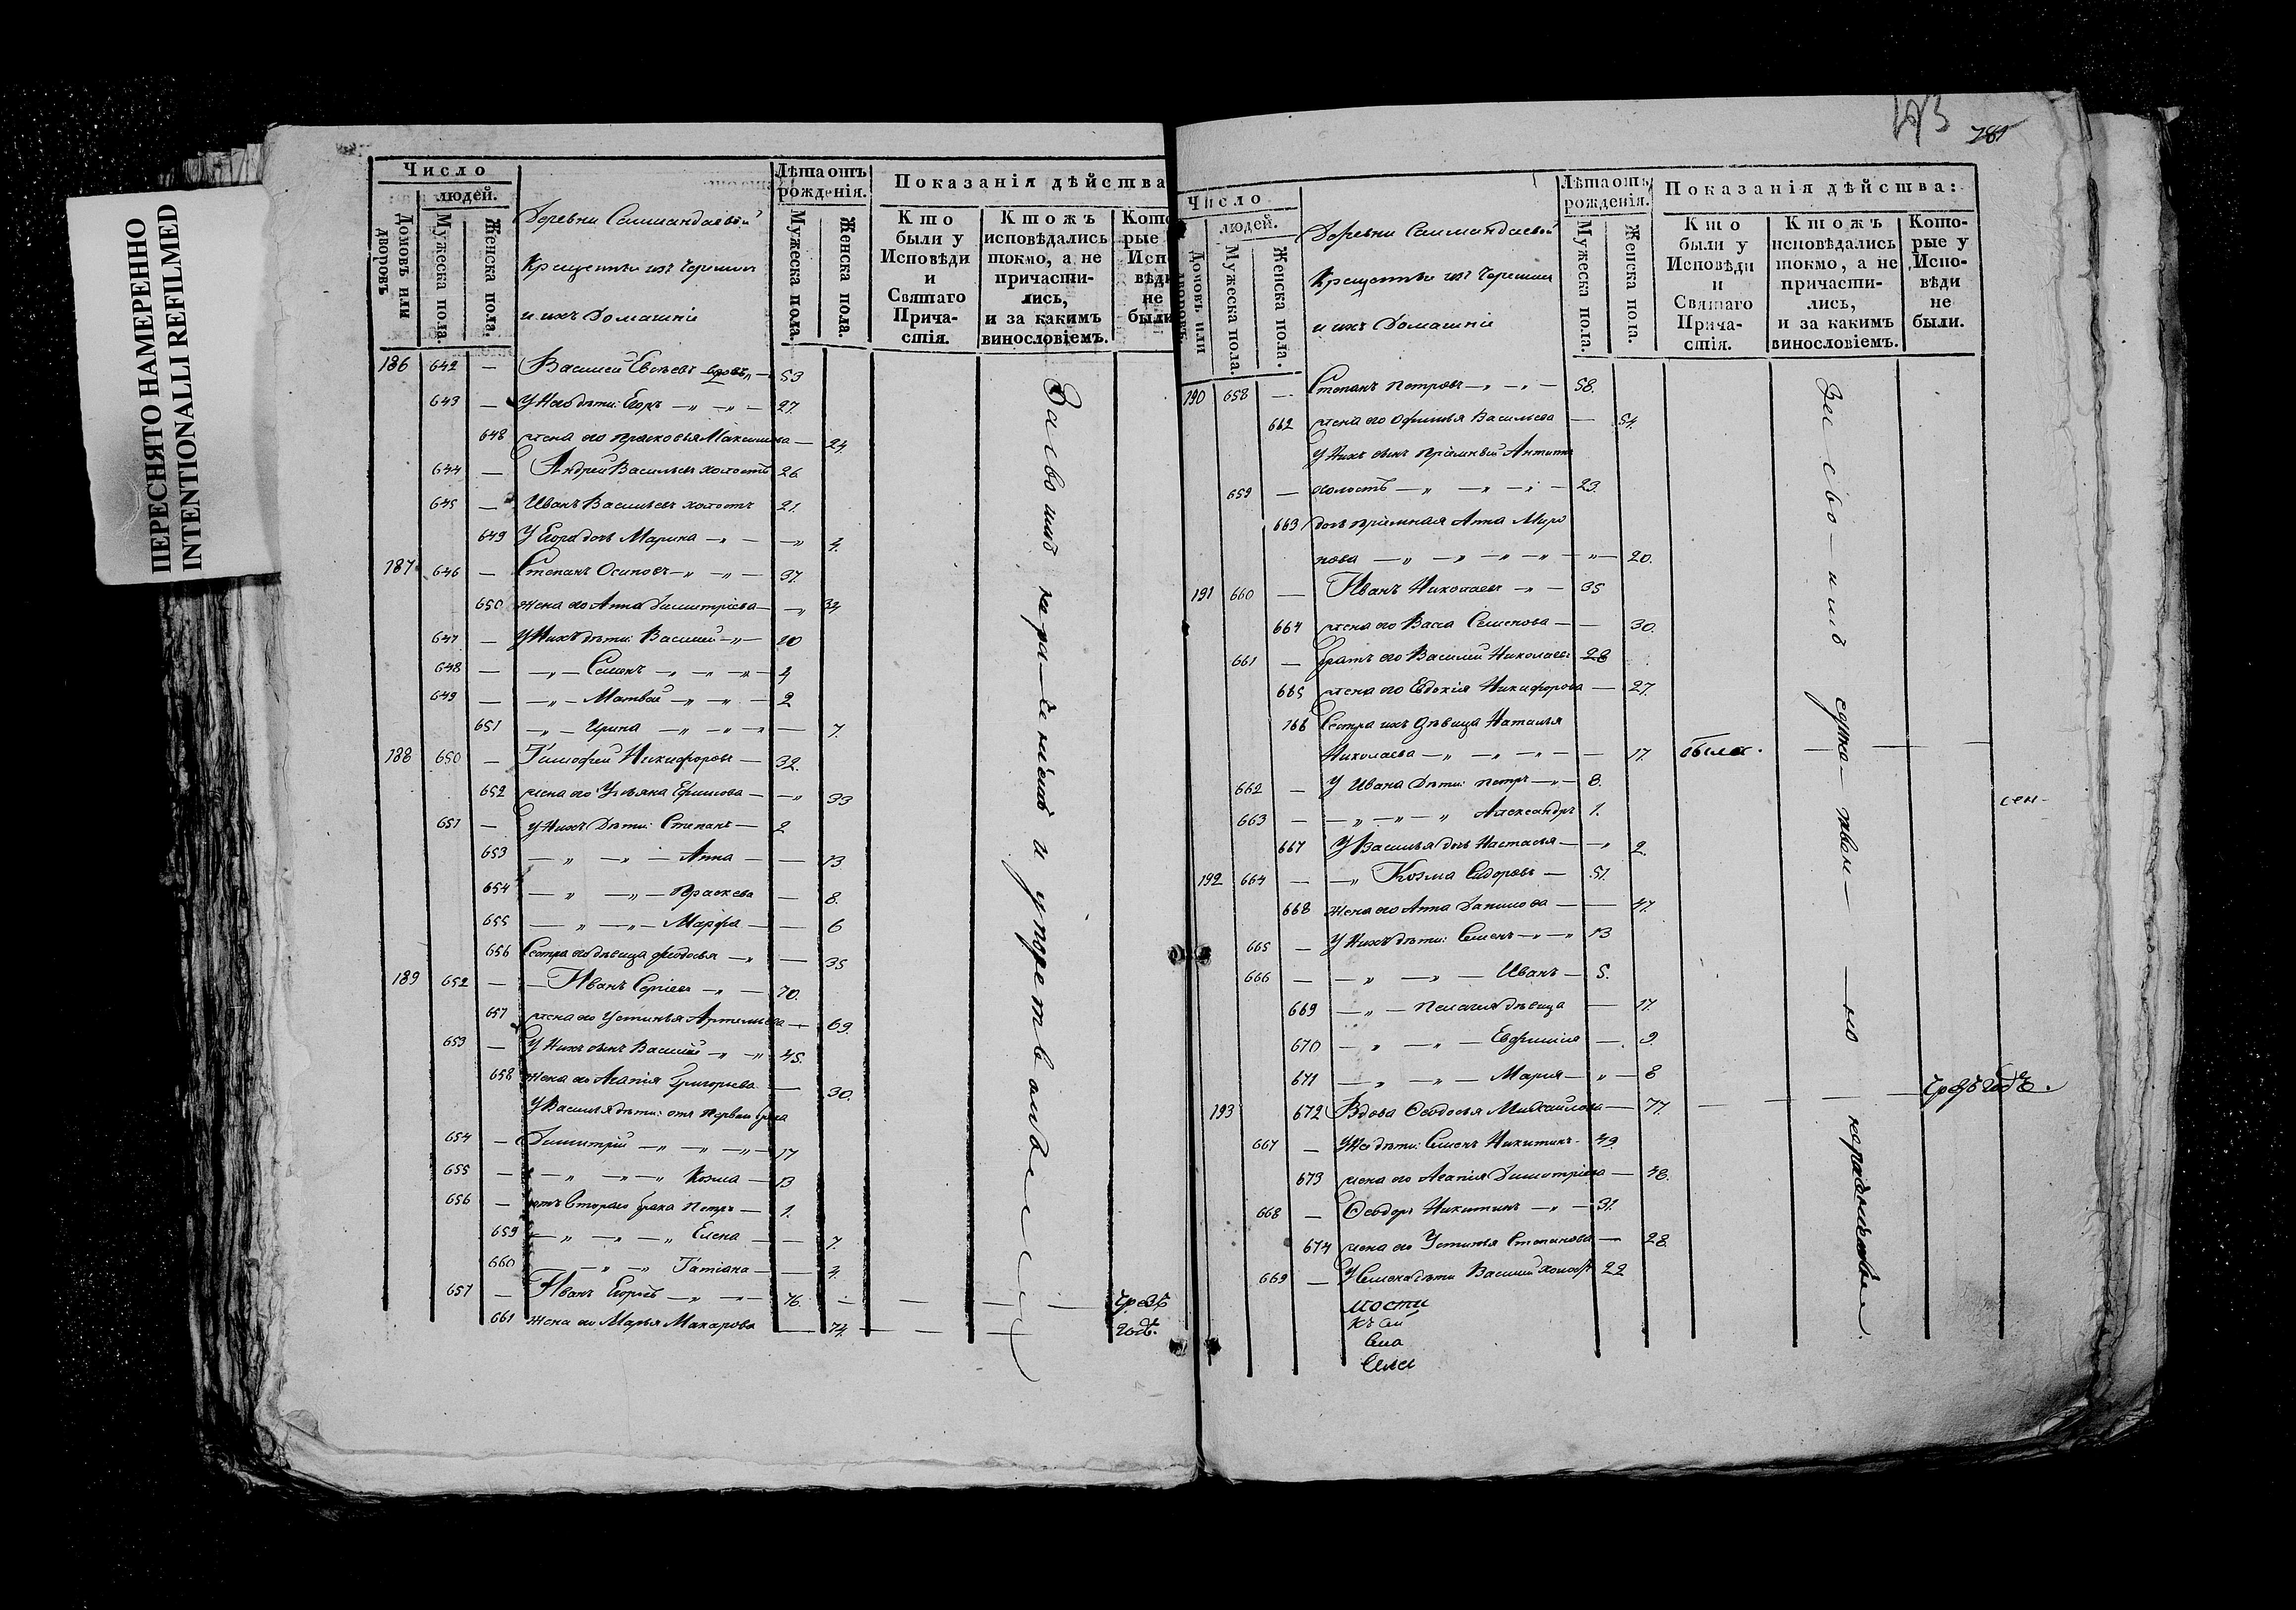 ПЕРЕСНЯТО НАМЕРЕННО
INTENTIONALLI REFILMED
Число
людей.
Домовъ или дворовъ
Мужеска пола.
Женска пола.
Лѣта отъ рожденія.
Мужеска пола.
Женска пола.
Показанія дѣйства
Кто были у Исповѣди и Святаго Причастія.
Кто жъ исповѣдались токмо, а не причастились, и за какимъ винословіемъ.
Кото рые Исп вѣди не были
Деревни
Крещенные изъ Черемис
и ихъ Домашніе
186 642 — Василей Евсѣевъ вдовъ — 53
643 — У Него дѣти: Егоръ — „ — „ — 27.
648 жена его Прасковья Максимова — 24.
644 — Андрей Васильевъ холостъ 26
645 — Иванъ Васильевъ холостъ 21.
649 У Егора дочь Марина — „ — — „ 4.
187 646 — Степанъ Осиповъ — „ — „ — 37.
650 жена его Анна Димитріева — — „ 34
647 — У Нихъ дѣти: Василей — „ — 10
648 — — „ — Семенъ — „ — „ — „ — 4
649 — — „ — Матвей — „ — „ — 2
651 — „ — Ирина — „ — „ — „ — 7.
188 650 — Тимофей Никифоровъ — 32.
652 жена его Ульяна Ефимова — — „ 33
651 — У Нихъ Дѣти: Степанъ — 2
653 — „ — „ — Анна — — 13.
654 — „ — „ — Праскева — 8.
655 — „ — „ — Марфа — — 6
656 Сестра его дѣвица Феодосья — „ — 35
189 652 — — Иванъ Сергіевъ — „ — 70.
657 жена его Устинья Артемьева — 69.
653 — У Нихъ сынъ Василей — „ — „ 45.
658 жена его Агапія Григорьева — 30.
У Василья дѣти: отъ Перваго брака
654 — Димитрій — „ — „ — „ — 17
655 — — „ — „ — „ Козма — 13
656 — отъ Втораго брака Петръ — 1.
659 — „ — „ — „ Елена — — 7.
660 — „ — „ Татіана — — 4.
657 — Иванъ Егоровъ — „ — „ — 76. — — — чрезъ
661 жена его Марья Макарова — 74. — — — годъ.
и упорствомъ
781
Число
людей.
Домовъ или дворовъ
Мужеска пола.
Женска пола.
Лѣта отъ рожденія.
Мужеска пола.
Женска пола.
Показанія дѣйства:
Кто были у Исповѣди и Святаго Причастія.
Кто жъ исповѣдались токмо, а не причастились, и за какимъ винословіемъ.
Кото- рые у Испо- вѣди не были.
Деревни
Крещенные изъ Черемис
и ихъ Домашніе
190 658 — Степанъ Петровъ — „ — „ — 58.
662 жена его Офимья Васильева — 54.
У Нихъ сынъ пріемный
659 — холостъ — „ — „ — „ — 23.
663 дочь пріемная Анна Миро
нова — „ — „ — „ — „ — „ — 20.
191 660 — Иванъ Николаевъ — „ — 35
664 жена его Васса Семенова — — 30.
661 — братъ его Василей Николаевъ 28
665 жена его Евдокія Никифорова — 27.
766 Сестра ихъ дѣвица Наталья
Николаева — „ — „ — „ — — 17. была. — — —
662 — У Ивана Дѣти: Петръ — „ — 8.
663 — — „ — „ — „ Александръ 1.
667 У Василья дочь Настасья — — „ 2.
192 664 — — „ Козма Сидоровъ — 51.
668 жена его Анна Данилова — — 47.
665 — У Нихъ дѣти: Семенъ — „ — „ 13
666 — — „ — „ — Иванъ — 5.
669 — „ — Пелагея дѣвица — 17.
670 — „ — „ — Евфимія — 9.
671 — „ — „ — Марія — „ — 8
193 672 Вдова Феодосья Михайлова — 77. — — — — чрезъ годъ.
667 — У Нее дѣти: Семенъ Никитинъ — 49
673 жена его Агапія Димитріева — 48.
668 — Феодоръ Никитинъ — „ — 31.
674 жена его Устинья Степанова — 28.
669 — У Семена дѣти Василей холостъ 22
мости
сен-